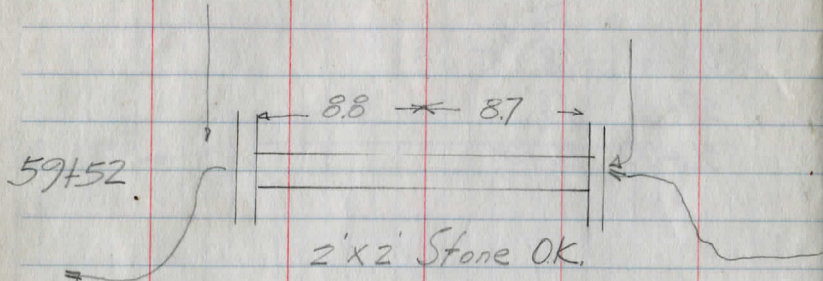 8.8 8.7
59+52.
2'x2' Stone OK.